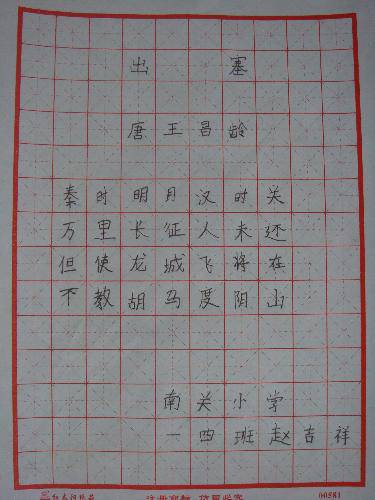 出塞
唐王昌龄
秦时明月汉时关
万里长征人未还
但使龙城飞将在
不教胡马度阴山
南关小学
一四班赵吉祥
00581